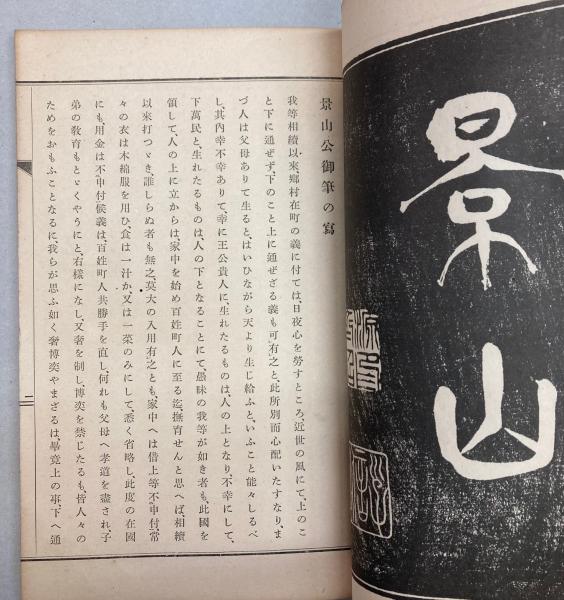 景山
景山公御筆の寫
我等相續以來、鄕村在町の義に付ては、日夜心を勞すところ、近世の風にて、上のこ
と下に通ぜず、下のこと上に通ぜざる義も可有之と、此所別而心配いたすなり、ま
づ人は父母ありて生ると、はいひながら天より生じ給ふと、いふこと能々しるべ
し、其內幸不幸ありて、幸に王公貴人に、生れたるものは、人の上となり、不幸にして、
下萬民と、生れたるものは、人の下となることにて、愚昧の我等が如き者も、此國を
領して、人の上に立からは、家中を始め百姓町人に至る迄撫育せんと思へば、相續
以來打つゞき、誰しらぬ者も無之、莫大の入用有之とも、家中へは借上等不申付、常
々の衣は木綿服を用ひ、食は一汁か、又は一菜のみにして、悉く省略し、此度の在國
にも、用金は不申付候義は、百姓町人共勝手を直し、何れも父母へ孝道を盡され、子
弟の敎育もとゞくやうにと、右樣になし、又奢を制し、博奕を禁じたるも、皆人々の
ためをおもふことなるに、我らが思ふ如く奢博奕やまざるは、畢竟上の事、下へ通
二